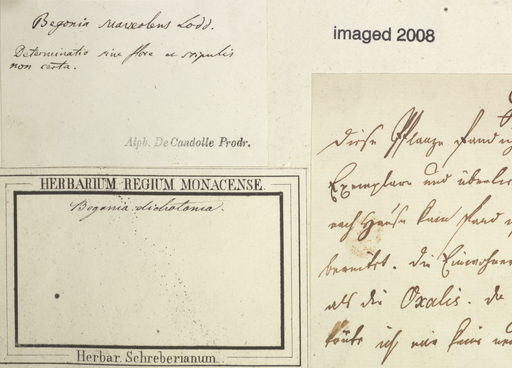 Begonia suaveolens Lodd.
Determinatio sine flore et stipulis
non certa.
Alph. De Candolle Prodr.
imaged 2008
HERBARIUM REGIUM MONACENSE.
Begonia dichotoma.
Herbar. Schreberianum
Diese Pflanze fand
Exemplare und
nach Hause kam fand
bereitet. die Einwohner
als die Oxalis. da
ich